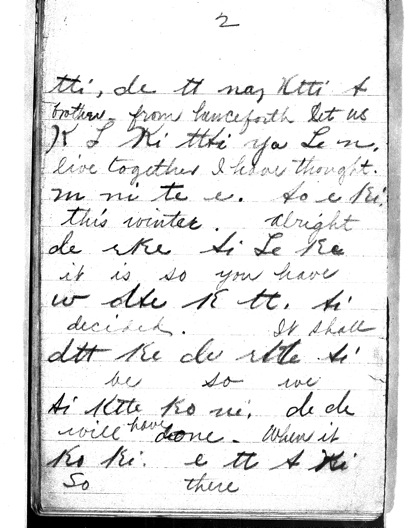 2
tti, de tt nay Ktti A
brother, from hanceforth let us
K L Ki tthi ya Le n.
live together I have thought.
m ni te e. so e Ki.
this winter. Alright
de ske si Le Ke
it is so you have
w dtte K tt. si
decided. It shall
dtt Ke de si
be so we
si Ktte Ko ni, de de
will have done. When it
Ko Ki. e tt A Ki
So there